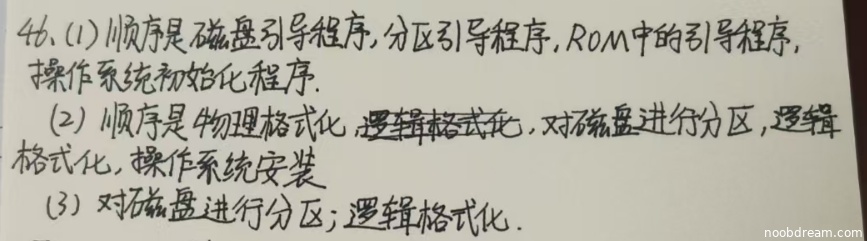 46、(1)顺序是磁盘引导程序,分区引导程序,ROM中的引导程序,
操作系统初始化程序.
(2)顺序是物理格式化,逻辑格式化,对磁盘进行分区,逻辑
格式化,操作系统安装
(3)对磁盘进行分区;逻辑格式化.
noobdream.com